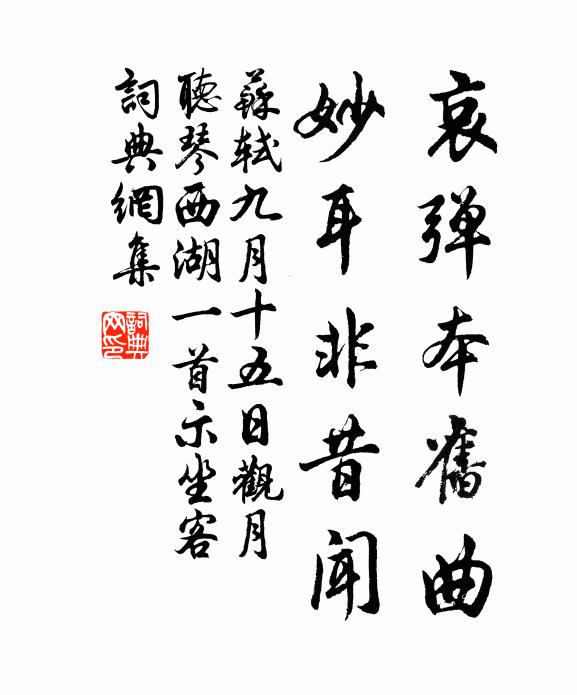 哀弹本舊曲
妙耳非昔聞
蘇軾九月十五日觀月
聽琴西湖一首示坐客
詞典網集
詞典
网印